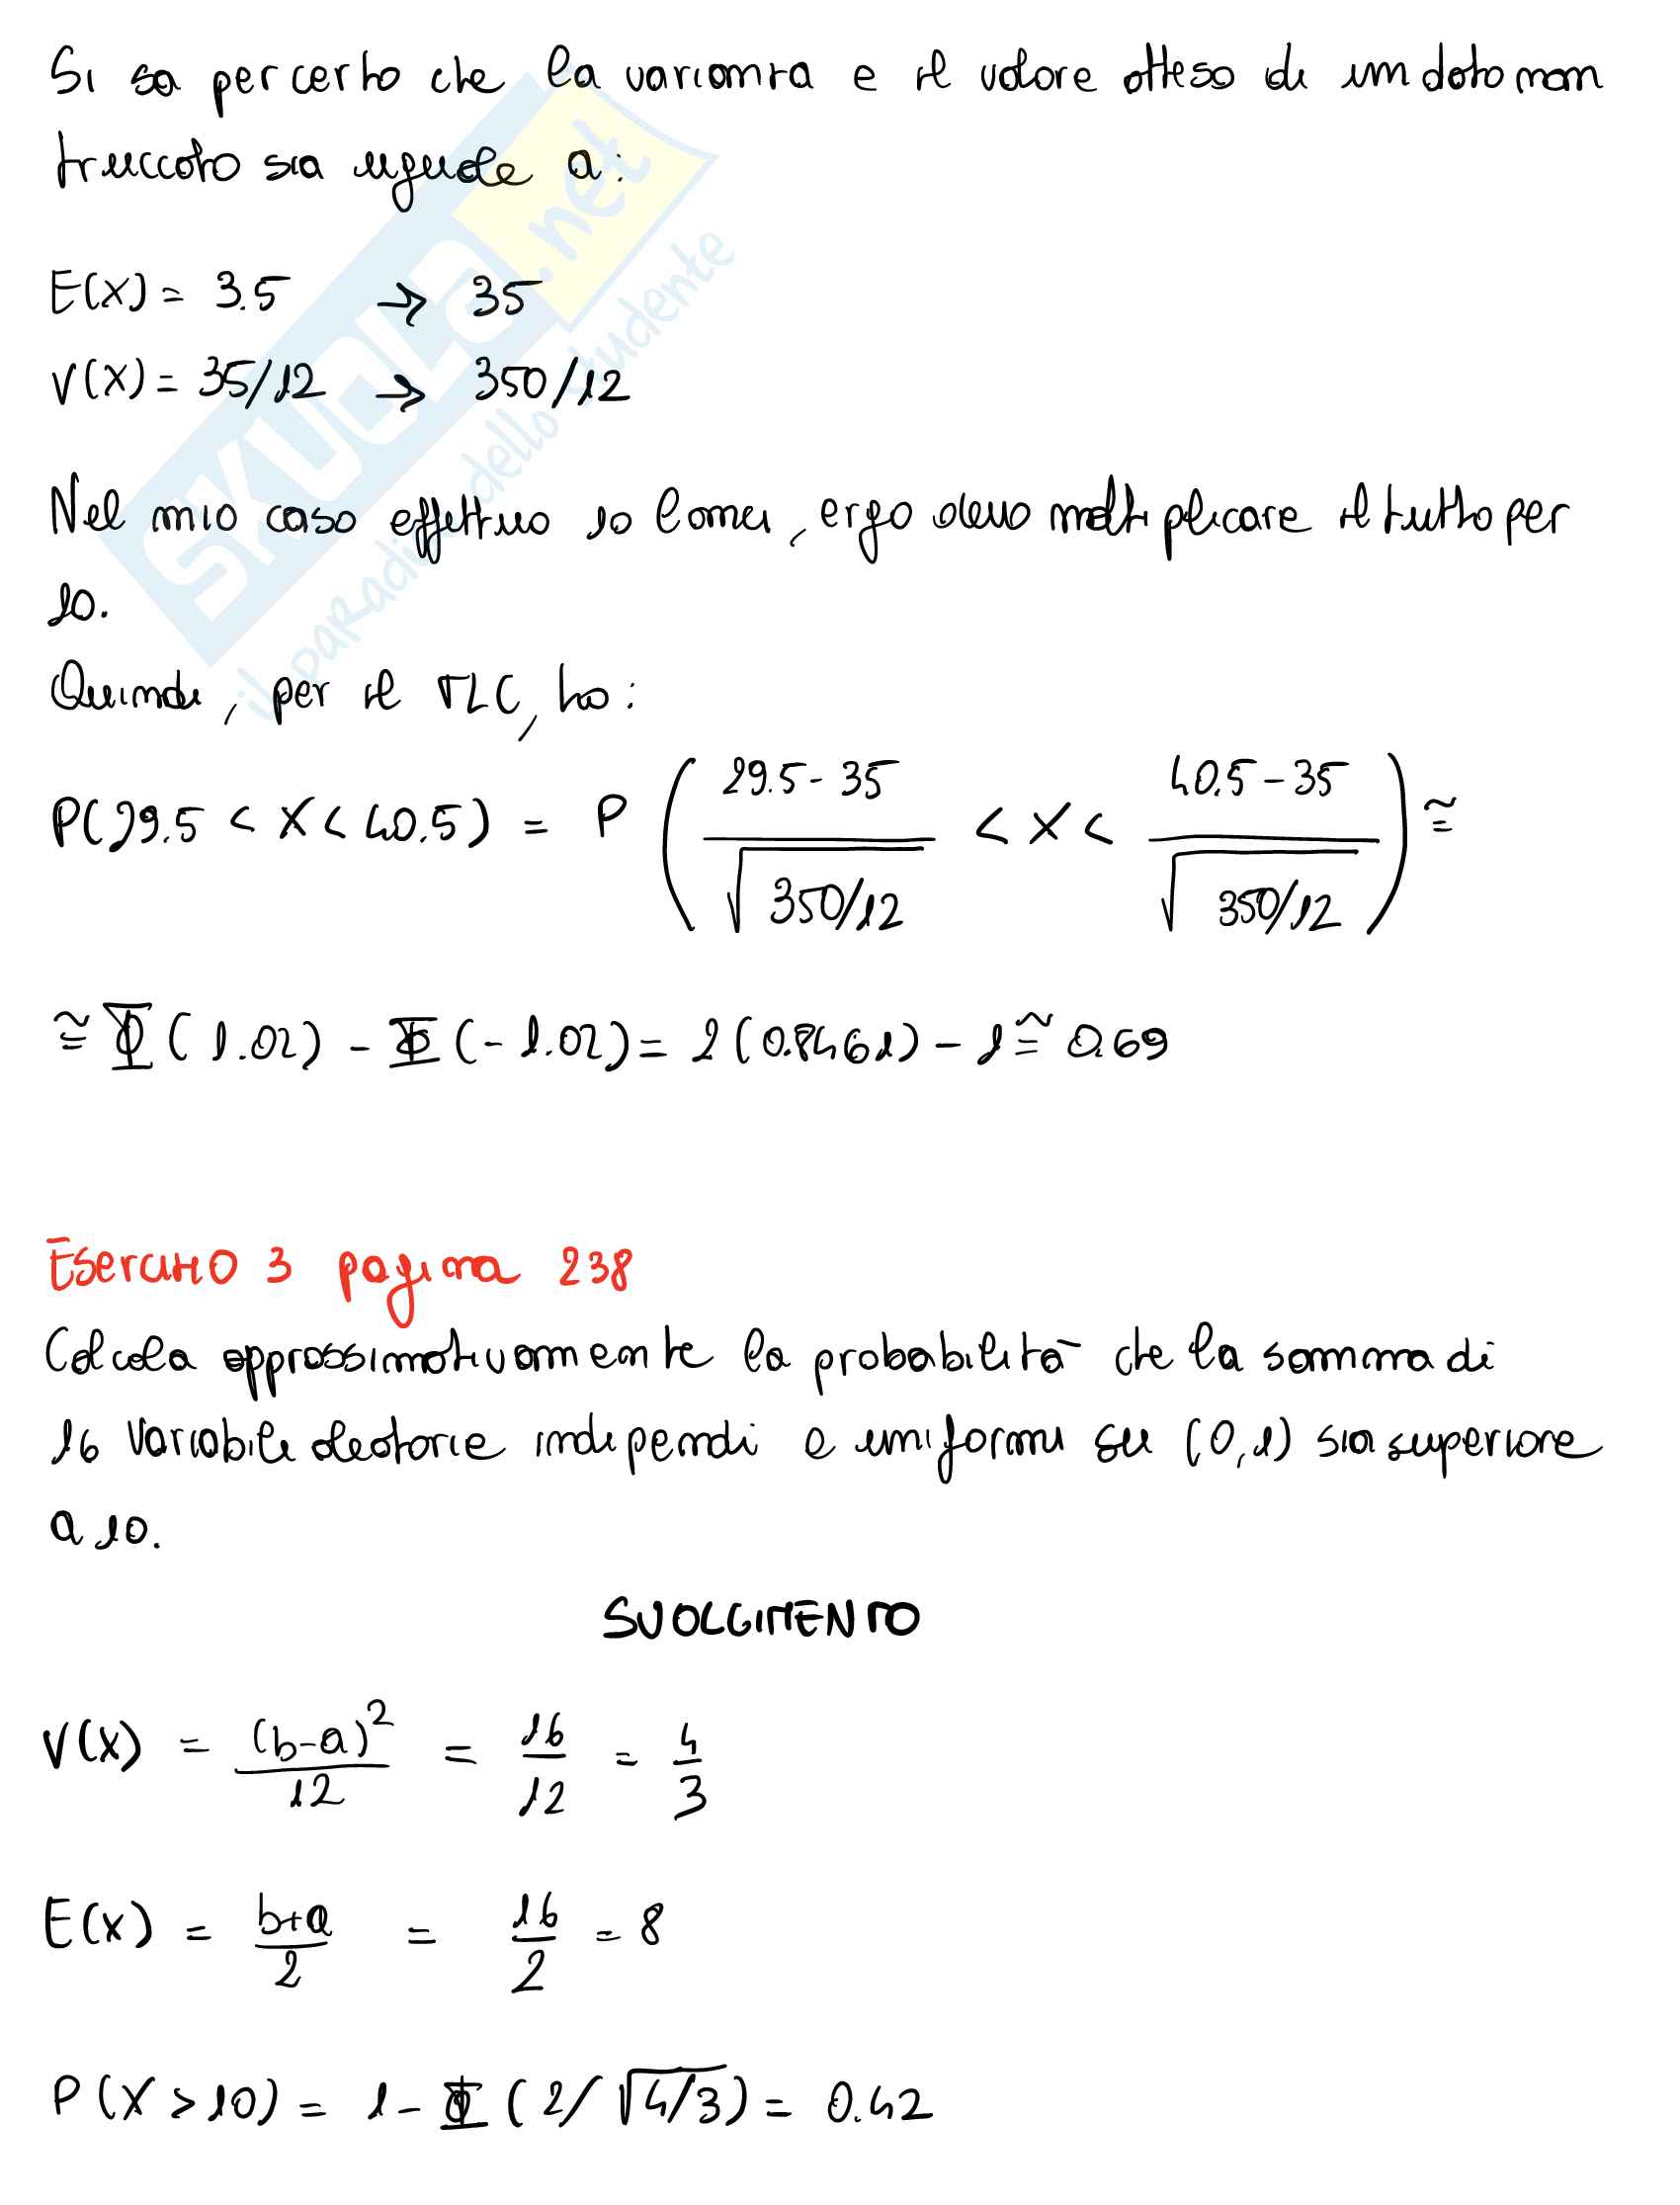 Si sa per certo che la varianza e il valore atteso di un dado non
truccato sia uguale a:
E(X) = 3.5 → 35
V(X) = 35/12 → 350/12
Nel mio caso effettuo 10 lanci, ergo devo moltiplicare il tutto per
10.
Quindi, per il TLC, ho:
P(29.5 < X < 40.5) = P ( (29.5 - 35)/√(350/12) < X < (40.5 - 35)/√(350/12) ) ≅
≅ Φ(1.02) - Φ(-1.02) = 2(0.8461) - 1 ≅ 0.69
Esercizio 3 pagina 238
Calcola approssimativamente la probabilità che la somma di
16 variabile aleatorie indipendi e uniformi su (0,1) sia superiore
a 10.
SVOLGIMENTO
V(X) = (b-a)²/12 = 16/12 = 4/3
E(X) = (b+a)/2 = 16/2 = 8
P(X > 10) = 1 - Φ(2/√(4/3)) = 0.42
SKUOLA.net
il paradiso dello studente